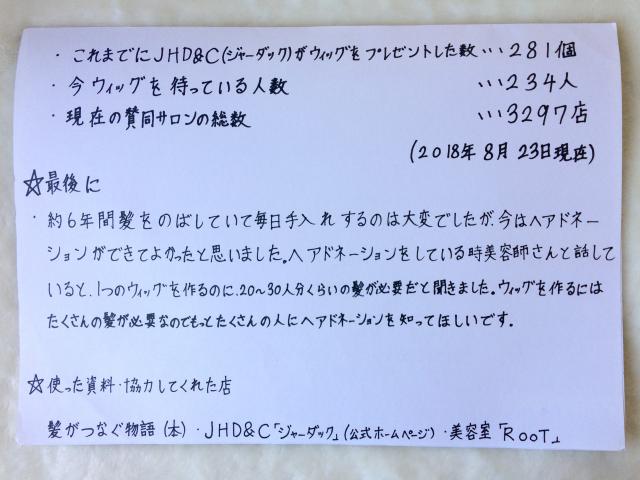 ・これまでにJHD&C(ジャーダック)がウィッグをプレゼントした数…281個
・今ウィッグを待っている人数 …234人
・現在の賛同サロンの総数 …3297店
(2018年8月23日現在)
☆最後に
・約6年間髪をのばしていて毎日手入れするのは大変でしたが、今はヘアドネー
ションができてよかったと思いました。ヘアドネーションをしている時美容師さんと話して
いると、1つのウィッグを作るのに、20~30人分くらいの髪が必要だと聞きました。ウィッグを作るには
たくさんの髪が必要なのでもっとたくさんの人にヘアドネーションを知ってほしいです。
☆使った資料・協力してくれた店
髪がつなぐ物語(本)・JHD&C「ジャーダック」(公式ホームページ)・美容室「RooT」